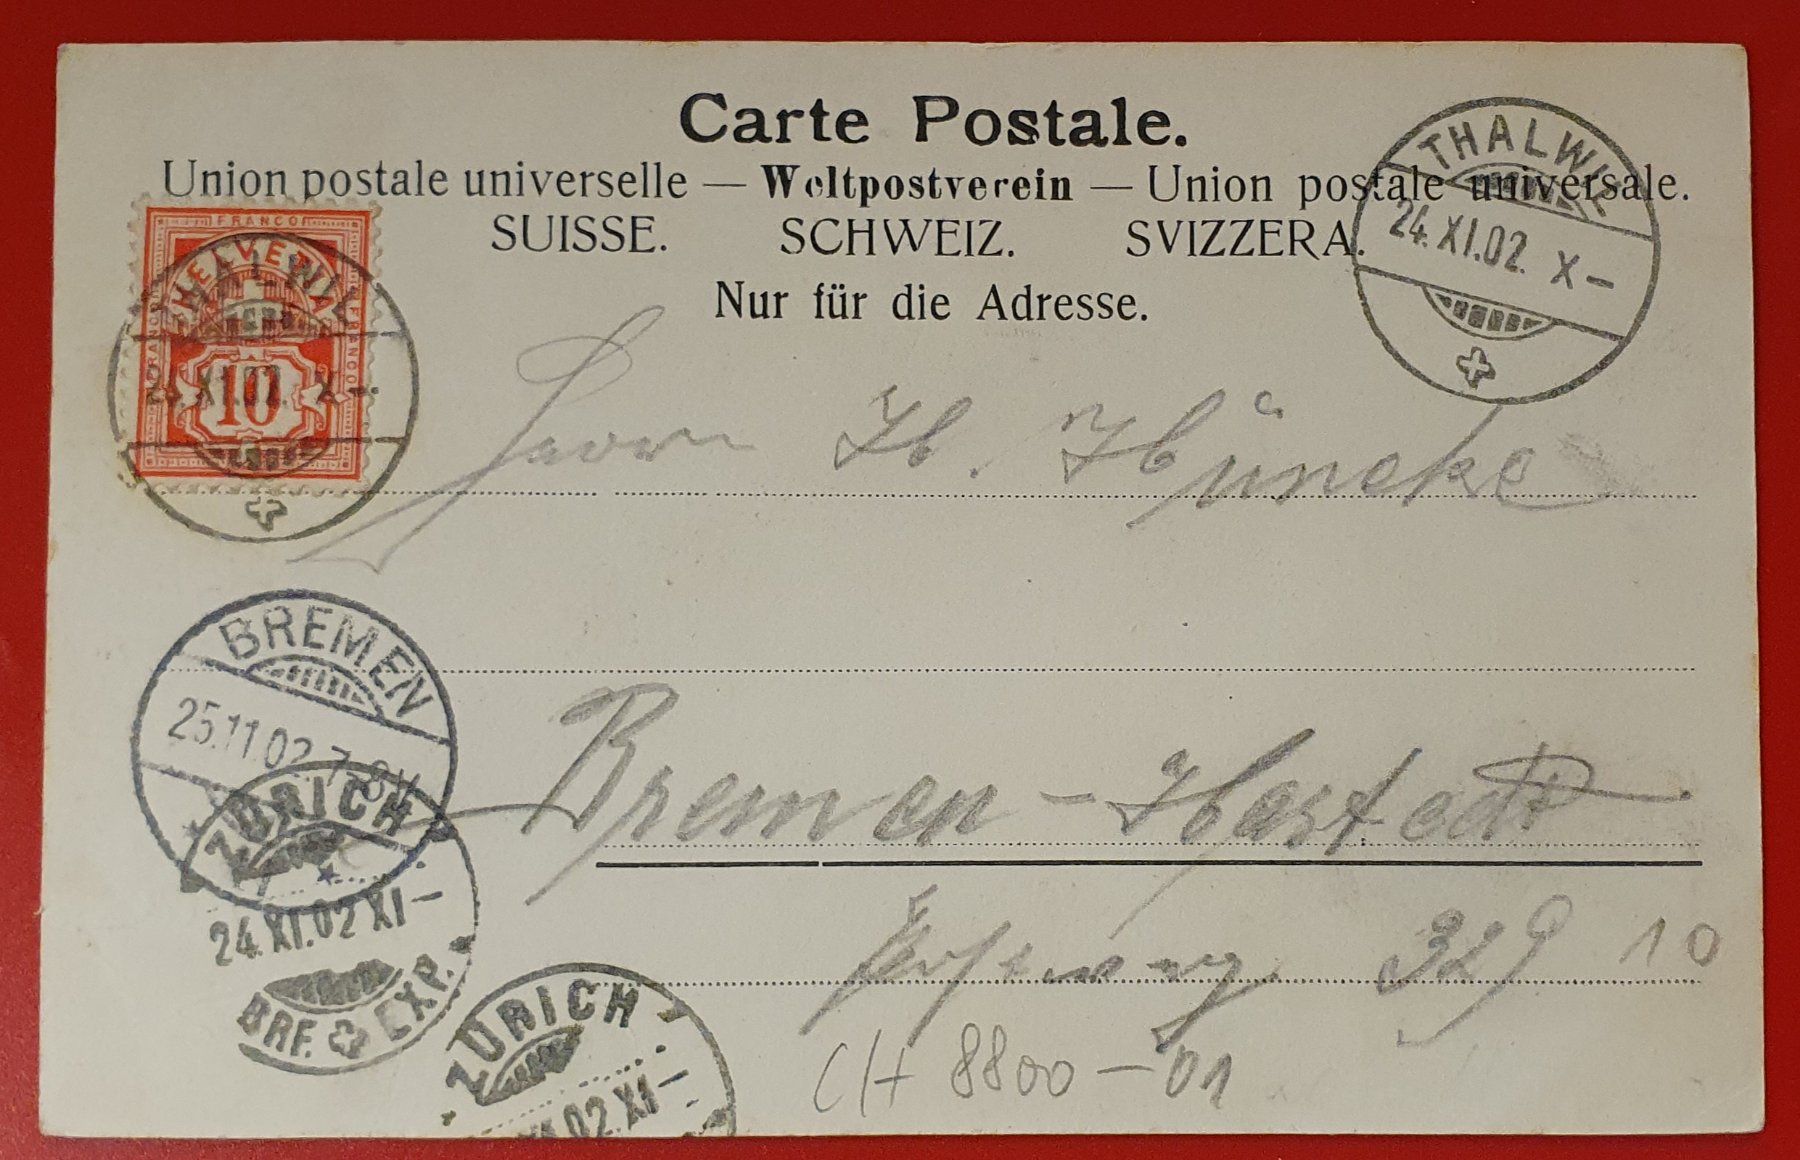 Carte Postale.
Union postale universelle — Weltpostverein — Union postale universale.
SUISSE. SCHWEIZ. SVIZZERA.
Nur für die Adresse.
FRANCO
HELVETIA
FRANCO
FRANCO
10
THALWIL
24.XI.02. X-
THALWIL
24.XI.02. X-
Herrn H. Hüneke
BREMEN
25.11.02.7-8V
Bremen-Hastedt
ZÜRICH
24.XI.02 XI-
BRF. EXP.
329 10
ZÜRICH
XI.02.XI-
CH 8800-01